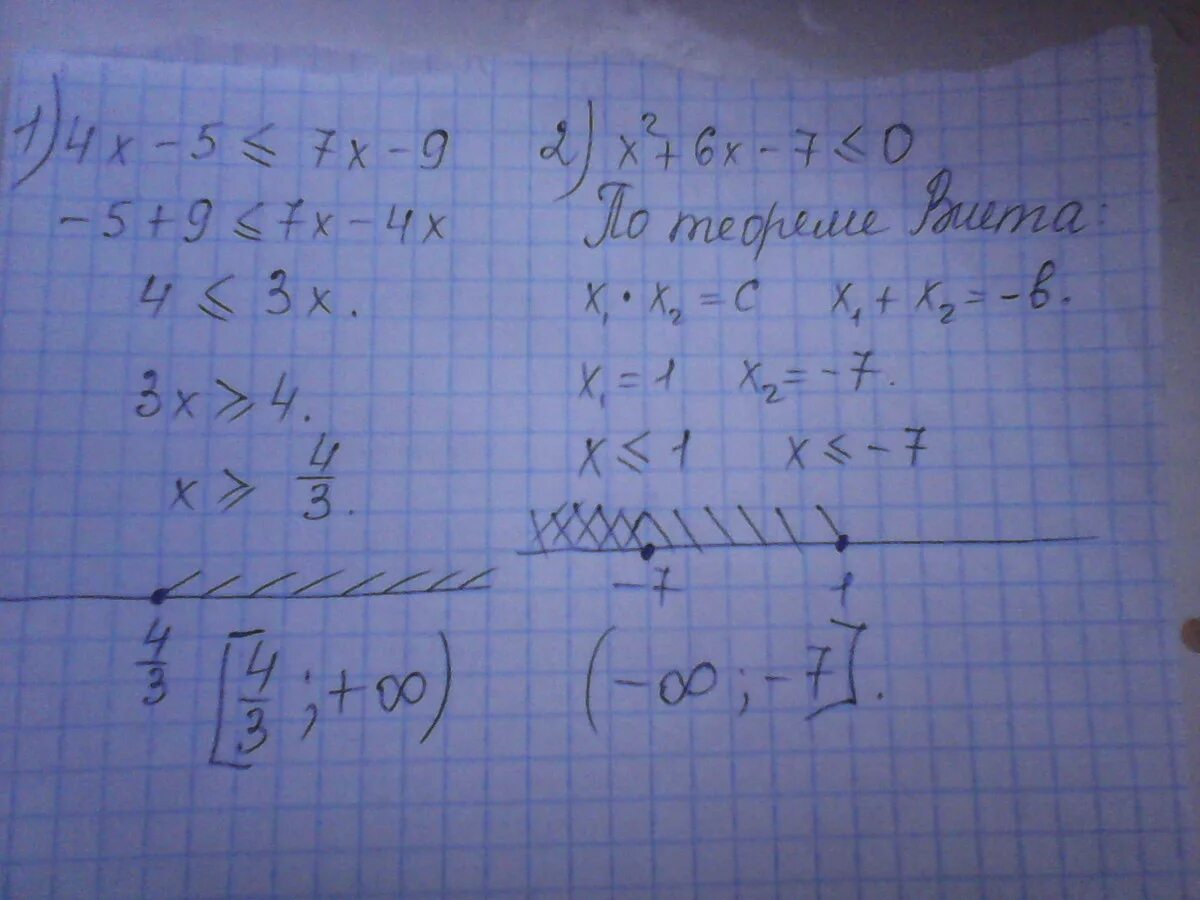 1) 4x - 5 ≤ 7x - 9
-5 + 9 ≤ 7x - 4x
4 ≤ 3x.
3x ⩾ 4.
x ⩾ 4/3.
4/3
[4/3 ; +∞)
2) x² + 6x - 7 ≤ 0
По теореме Виета:
x₁ · x₂ = c x₁ + x₂ = -в.
x₁ = 1 x₂ = -7.
x ≤ 1 x ≤ -7
-7 1
(-∞ ; -7].